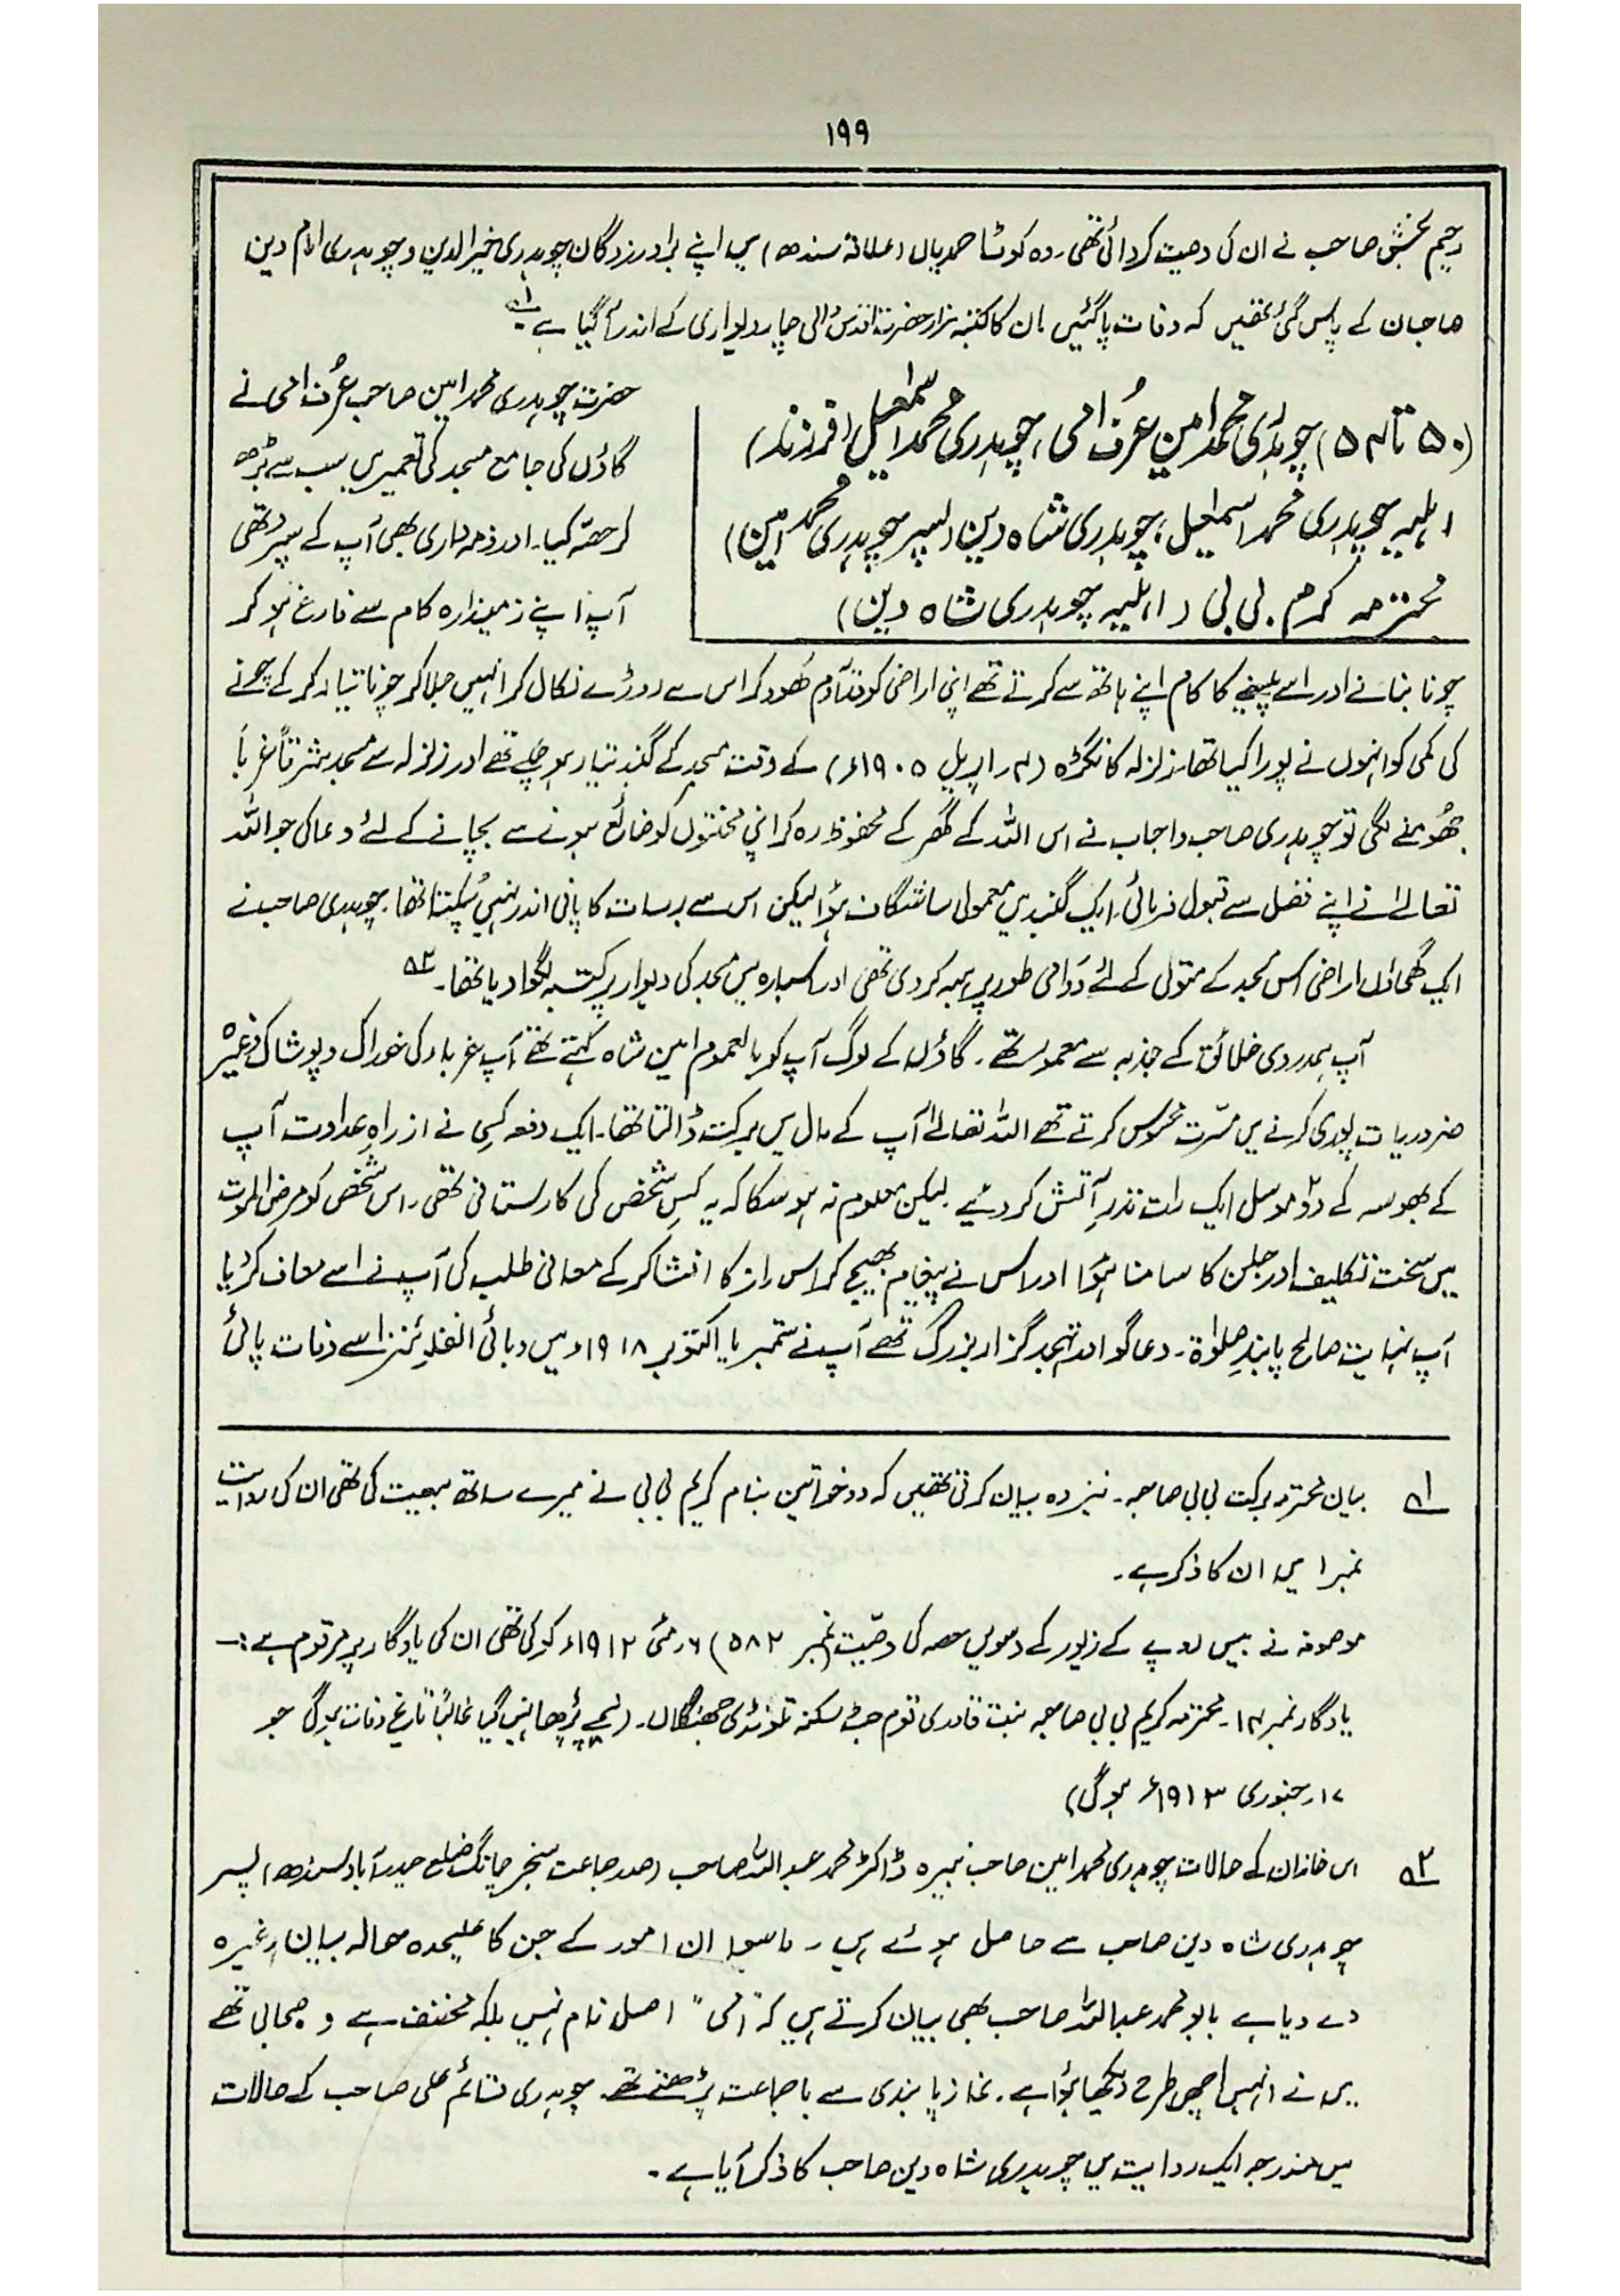 ۱۹۹
رحیم بخش صاحب نے ان کی وصیت کروائی تھی۔ وہ کوٹ احمدیاں (علاقہ سندھ) میں اپنے برادرزادگان چوہدری خیرالدین و چوہدری امام دین
صاحبان کے پاس گئی تھیں کہ وفات پا گئیں۔ ان کا کتبہ مزار حضرت اقدسؑ والی چار دیواری کے اندر آ گیا ہے ۱؎
(۵۰ تا ۵۴) چوہدری محمد امین عُرف امی، چوہدری محمد اسمٰعیل (فرزند)
اہلیہ چوہدری محمد اسمٰعیل، چوہدری شاہ دین (پسر چوہدری محمد امین)
محترمہ کرم بی بی (اہلیہ چوہدری شاہ دین)
حضرت چوہدری محمد امین صاحب عُرف امی نے
گاؤں کی جامع مسجد کی تعمیر میں سب سے بڑھ
کر حصّہ کیا۔ اور ذمہ داری بھی آپ کے سپرد تھی
آپ اپنے زمیندارہ کام سے فارغ ہو کر
چونا بنانے اور اسے پیسنے کا کام اپنے ہاتھ سے کرتے تھے اپنی اراضی کو قدِّآدم کھود کر اس سے روڑے نکال کر انہیں جلا کر چونا تیار کر کے چونے
کی کمی کو انہوں نے پورا کیا تھا۔ زلزلہ کانگڑہ (۴؍ اپریل ۱۹۰۵ء) کے وقت مسجد کے گنبد تیار ہو چکے تھے اور زلزلہ سے مسجد شرقاً غرباً
جھُومنے لگی تو چوہدری صاحب و احباب نے اس اللہ کے گھر کے محفوظ رہ کر اپنی محنتوں کو ضائع ہونے سے بچانے کے لئے دعا کی جو اللہ
تعالےٰ نے اپنے فضل سے قبول فرمائی۔ ایک گنبد میں معمولی سا شگاف ہؤا لیکن اس سے برسات کا پانی اندر نہیں ٹپکتا تھا۔ چوہدری صاحب نے
ایک گھماؤں اراضی اس مسجد کے متولی کے لئے دوامی طور پر ہبہ کر دی تھی اور اس بارہ میں مسجد کی دیوار پر کتبہ لگوا دیا تھا۔ ۲؎
آپ ہمدردی خلائق کے جذبہ سے معمور تھے۔ گاؤں کے لوگ آپ کو بالعموم امین شاہ کہتے تھے آپ غرباء کی خوراک و پوشاک وغیرہ
ضروریات پوری کرنے میں مسّرت محسوس کرتے تھے اللہ تعالےٰ آپ کے مال میں برکت ڈالتا تھا۔ ایک دفعہ کسی نے از راہِ عداوت آپ
کے بھوسہ کے دو موسل ایک رات نذرِ آتش کر دئیے لیکن معلوم نہ ہو سکا کہ یہ کس شخص کی کارستانی تھی۔ اس شخص کو مرض الموت
میں سخت تکلیف اور جلن کا سامنا ہؤا اور اس نے پیغام بھیج کر اس راز کا افشا کر کے معافی طلب کی آپ نے اسے معاف کر دیا
آپ نہایت صالح پابندِ صلوٰۃ۔ دعا گو اور تہجد گزار بزرگ تھے آپ نے ستمبر یا اکتوبر ۱۹۱۸ء میں وبائی انفلوئنزا سے وفات پائی
۱؎ بیان محترمہ برکت بی بی صاحبہ۔ نیز وہ بیان کرتی تھیں کہ دو خواتین بنام کریم بی بی نے میرے ساتھ بیعت کی تھی ان کی روایت
نمبر ۱ میں ان کا ذکر ہے۔
موصوفہ نے بیس روپے کے زیور کے دسویں حصہ کی وصیّت (نمبر ۵۸۲) ۶؍مئی ۱۹۱۲ء کو کی تھی ان کی یادگار پر مرقوم ہے :۔
یادگار نمبر ۱۴۔ محترمہ کریم بی بی صاحبہ بنت قادری قوم جٹ سکنہ تلونڈی جھنگلاں۔ (نیچے پڑھا نہیں گیا غالباً تاریخ وفات ہو گی جو
۱۷؍ جنوری ۱۹۱۳ء ہو گی)
۲؎ اس خاندان کے حالات چوہدری محمد امین صاحب نبیرہ ڈاکٹر محمد عبداللہ صاحب (صدر جماعت سنجر چانگ ضلع حیدرآباد سندھ) پسر
چوہدری شاہ دین صاحب سے حاصل ہوئے ہیں۔ ماسوا ان امور کے جن کا علیحدہ حوالہ بیان وغیرہ
دے دیا ہے بابو محمد عبداللہ صاحب بھی بیان کرتے ہیں کہ "امی" اصل نام نہیں بلکہ مخفف ہے وہ صحابی تھے
میں نے انہیں اچھی طرح دیکھا ہؤا ہے۔ نماز پابندی سے باجماعت پڑھتے تھے۔ چوہدری قائم علی صاحب کے حالات
میں مندرجہ ایک روایت میں چوہدری شاہ دین صاحب کا ذکر آیا ہے۔